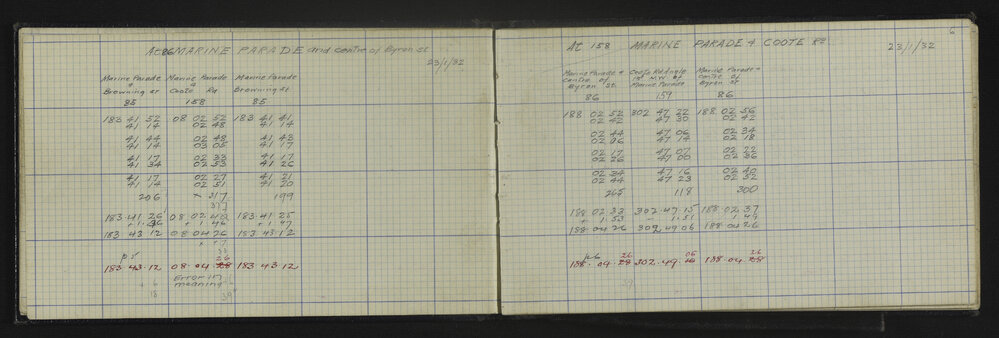 At 86 MARINE PARADE and centre of Byron St
23/1/32
Marine Parade + Browning St
Marine Parade + Coote Rd
Marine Parade + Browning St
85 158 85
183 41 52 08 02 52 183 41 41
41 14 02 48 41 14
41 44 02 48 41 43
41 14 03 05 41 17
41 17 02 33 41 17
41 34 02 53 41 26
41 17 02 27 41 21
41 14 02 51 41 20
206 317 199
317
183.41.26 08 02 40 183.41.25
+ 1.46 + 1 46 + 1.47
183 43 12 08 04 26 183.43.12
p 5
26
183.43.12 08.04.28 183 43 12
Error in meaning
6
At 158 MARINE PARADE + COOTE Rd
23/1/32
Marine Parade + Centre of Byron St
Coote Rd Angle 1st N.W. of Marine Parade
Marine Parade + centre of Byron St
86 159 86
188 02 52 302 47 22 188 02 56
02 42 47 30 02 42
02 44 47 06 02 34
02 06 47 14 02 18
02 17 47 07 02 22
02 26 47 00 02 36
02 34 47 16 02 40
02 44 47 23 02 52
265 118 300
188 02 33 302.47.15 188 02 37
+ 1.53 - 1.51 1 49
188.04 26 302 49 06 188 04 26
p6 26 06 26
188.04.28 302.49. 188.04.28